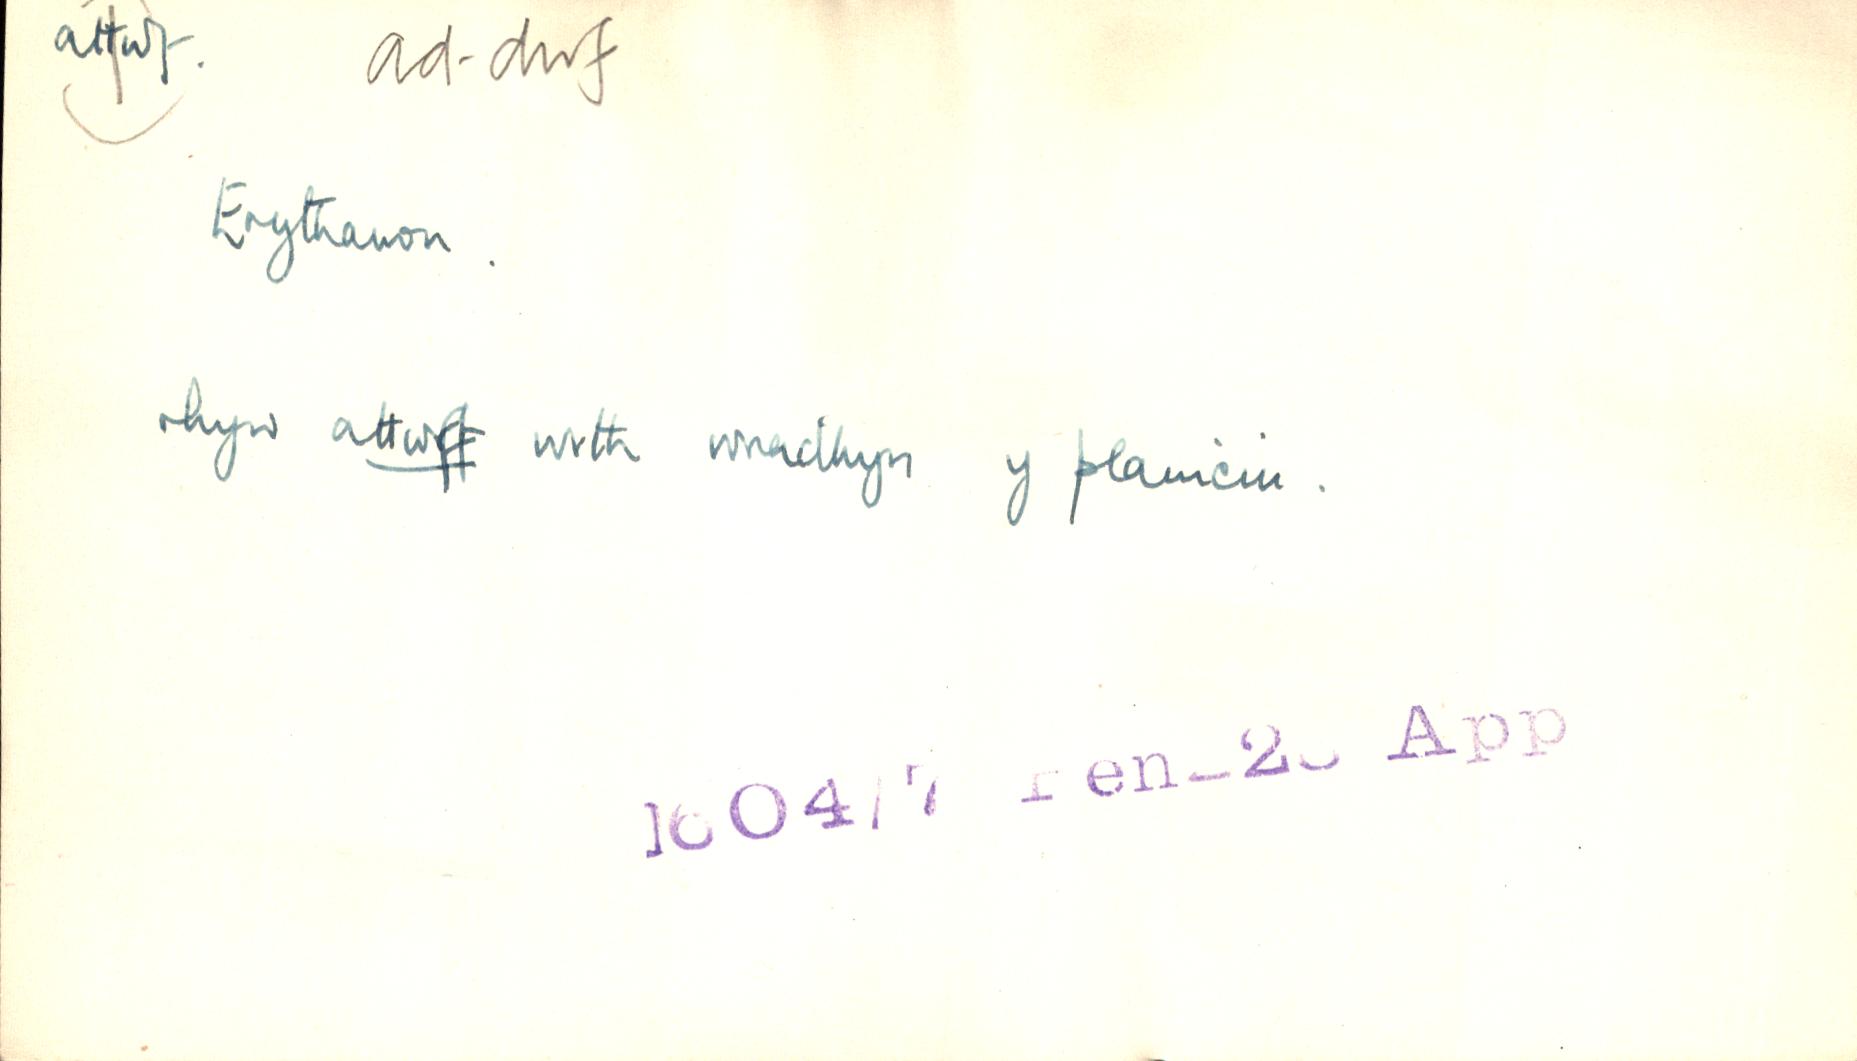 attwf. ad-dwf
Erythanon.
rhyw attwff wrth wradhyn y planicin.
1604/7 Pen 20 App